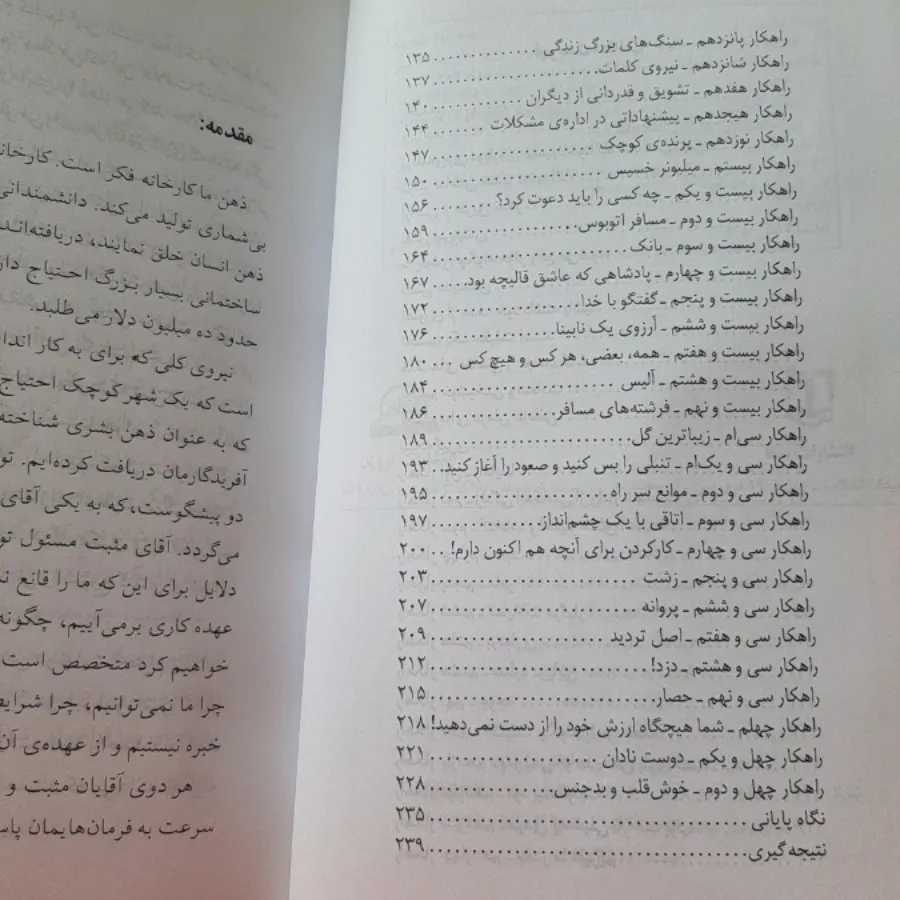 راهکار پانزدهم ـ سنگ‌های بزرگ زندگی ............. ۱۳۵
راهکار شانزدهم ـ نیروی کلمات ...................... ۱۳۷
راهکار هفدهم ـ تشویق و قدردانی از دیگران ............ ۱۴۰
راهکار هیجدهم ـ پیشنهاداتی در اداره‌ی مشکلات ....... ۱۴۴
راهکار نوزدهم ـ پرنده‌ی کوچک .................... ۱۴۷
راهکار بیستم ـ میلیونر خسیس .................... ۱۵۰
راهکار بیست و یکم ـ چه کسی را باید دعوت کرد؟ ........ ۱۵۶
راهکار بیست و دوم ـ مسافر اتوبوس .................. ۱۵۹
راهکار بیست و سوم ـ بانک ........................ ۱۶۴
راهکار بیست و چهارم ـ پادشاهی که عاشق قالیچه بود ..... ۱۶۷
راهکار بیست و پنجم ـ گفتگو با خدا .................. ۱۷۲
راهکار بیست و ششم ـ آرزوی یک نابینا ................ ۱۷۶
راهکار بیست و هفتم ـ همه، بعضی، هر کس و هیچ کس ... ۱۸۰
راهکار بیست و هشتم ـ آلیس ...................... ۱۸۴
راهکار بیست و نهم ـ فرشته‌های مسافر ................ ۱۸۶
راهکار سی‌ام ـ زیباترین گل ........................ ۱۸۹
راهکار سی و یک‌ام ـ تنبلی را بس کنید و صعود را آغاز کنید .. ۱۹۳
راهکار سی و دوم ـ موانع سر راه ..................... ۱۹۵
راهکار سی و سوم ـ اتاقی با یک چشم‌انداز .............. ۱۹۷
راهکار سی و چهارم ـ کارکردن برای آنچه هم اکنون دارم! ... ۲۰۰
راهکار سی و پنجم ـ زشت ........................ ۲۰۳
راهکار سی و ششم ـ پروانه ........................ ۲۰۷
راهکار سی و هفتم ـ اصل تردید .................... ۲۰۹
راهکار سی و هشتم ـ دزد! ........................ ۲۱۲
راهکار سی و نهم ـ حصار ......................... ۲۱۵
راهکار چهلم ـ شما هیچگاه ارزش خود را از دست نمی‌دهید! ۲۱۸
راهکار چهل و یکم ـ دوست نادان .................... ۲۲۱
راهکار چهل و دوم ـ خوش‌قلب و بدجنس ............... ۲۲۸
نگاه پایانی .................................... ۲۳۵
نتیجه‌گیری ................................... ۲۳۹
مقدمه:
ذهن ما کارخانه فکر است. کارخانه
بی‌شماری تولید می‌کند. دانشمندانی
ذهن انسان خلق نمایند، دریافته‌اند
ساختمانی بسیار بزرگ احتیاج
حدود ده میلیون دلار می‌طلبد.
نیروی کلی که برای به کار
است که یک شهر کوچک احتیاج
که به عنوان ذهن بشری شناخته
آفریدگارمان دریافت کرده‌ایم.
دو پیشگوست، که به یکی آقای
می‌گردد. آقای مثبت مسئول
دلایل برای این که ما را قانع
عهده کاری برمی‌آییم، چگونه
خواهیم کرد متخصص است
چرا ما نمی‌توانیم، چرا
خبره نیستیم و از عهده‌ی آن
هر دوی آقایان مثبت و
سرعت به فرمان‌هایمان